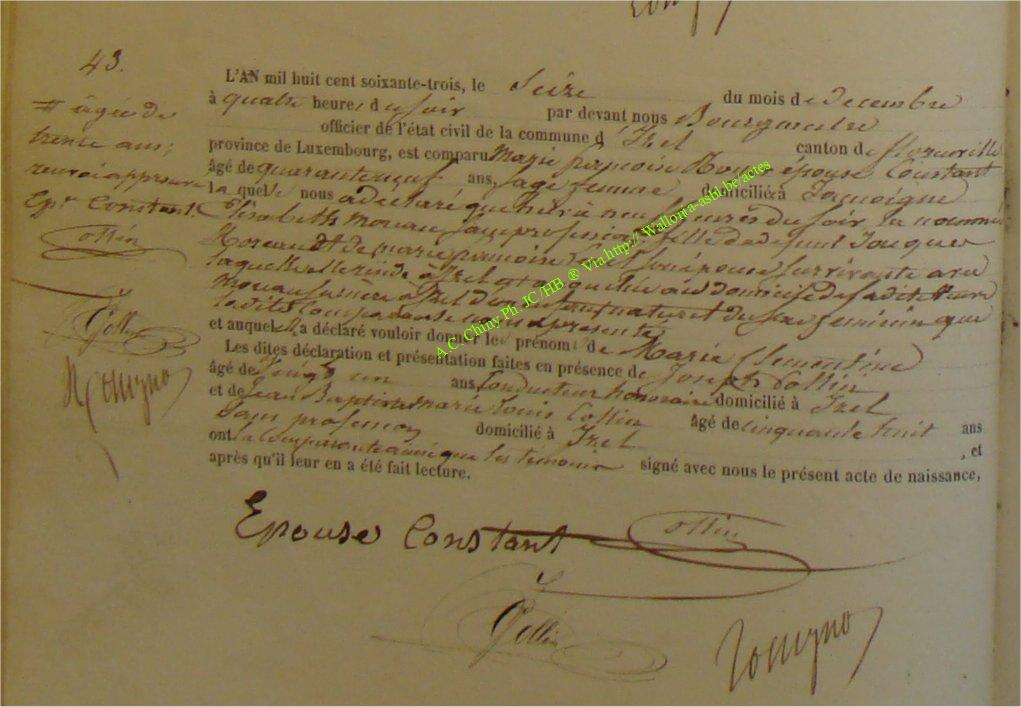 43.
L'AN mil huit cent soixante-trois, le seize du mois de decembre
à quatre heures du soir par devant nous Bourgmestre
officier de l'état civil de la commune d'Izel canton de florenville
province de Luxembourg, est comparu Marie françoise épouse Constant
âgé de quaranteneuf ans, sage femme domiciliée à Jamoigne
laquelle nous a déclaré que hier à neuf heures du soir la nommée
Elisabeth Moreau sans profession fille de defunt Jacques
Moreau et de marie françoise son épouse survivante avec
laquelle elle reside à Izel est au domicile de sadite mere
enfant naturel du sexe feminin que
ladite Comparante nous a presenté
et auquel elle a déclaré vouloir donner les prénoms de Marie Clementine
Les dites déclaration et présentation faites en présence de Joseph Collin
âgé de vingt un ans, Conducteur honoraire domicilié à Izel
et de Jean Baptiste Marie Louis Collin âgé de cinquante huit ans
sans profession domicilié à Izel , et
ont la Comparante ainsi que les temoins signé avec nous le présent acte de naissance,
après qu'il leur en a été fait lecture.
# âgée de
trente ans;
renvoi approuvé
Epse Constant.
Collin
Collin
Epouse Constant
Collin
Collin
A.C. Chiny Ph. JC /HB ® Via http:// Wallonia-asbl.be/actes